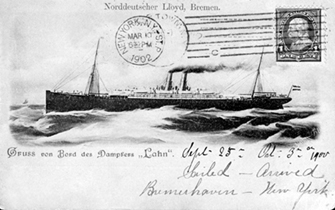 Norddeutscher Lloyd, Bremen.
NEW YORK, N.Y.
MAR
1902
1
Gruss von Bord des Dampfers „Lahn“. Sept 25 – Oct. 3 1900
Sailed – Arrived
Bremerhaven – New York.